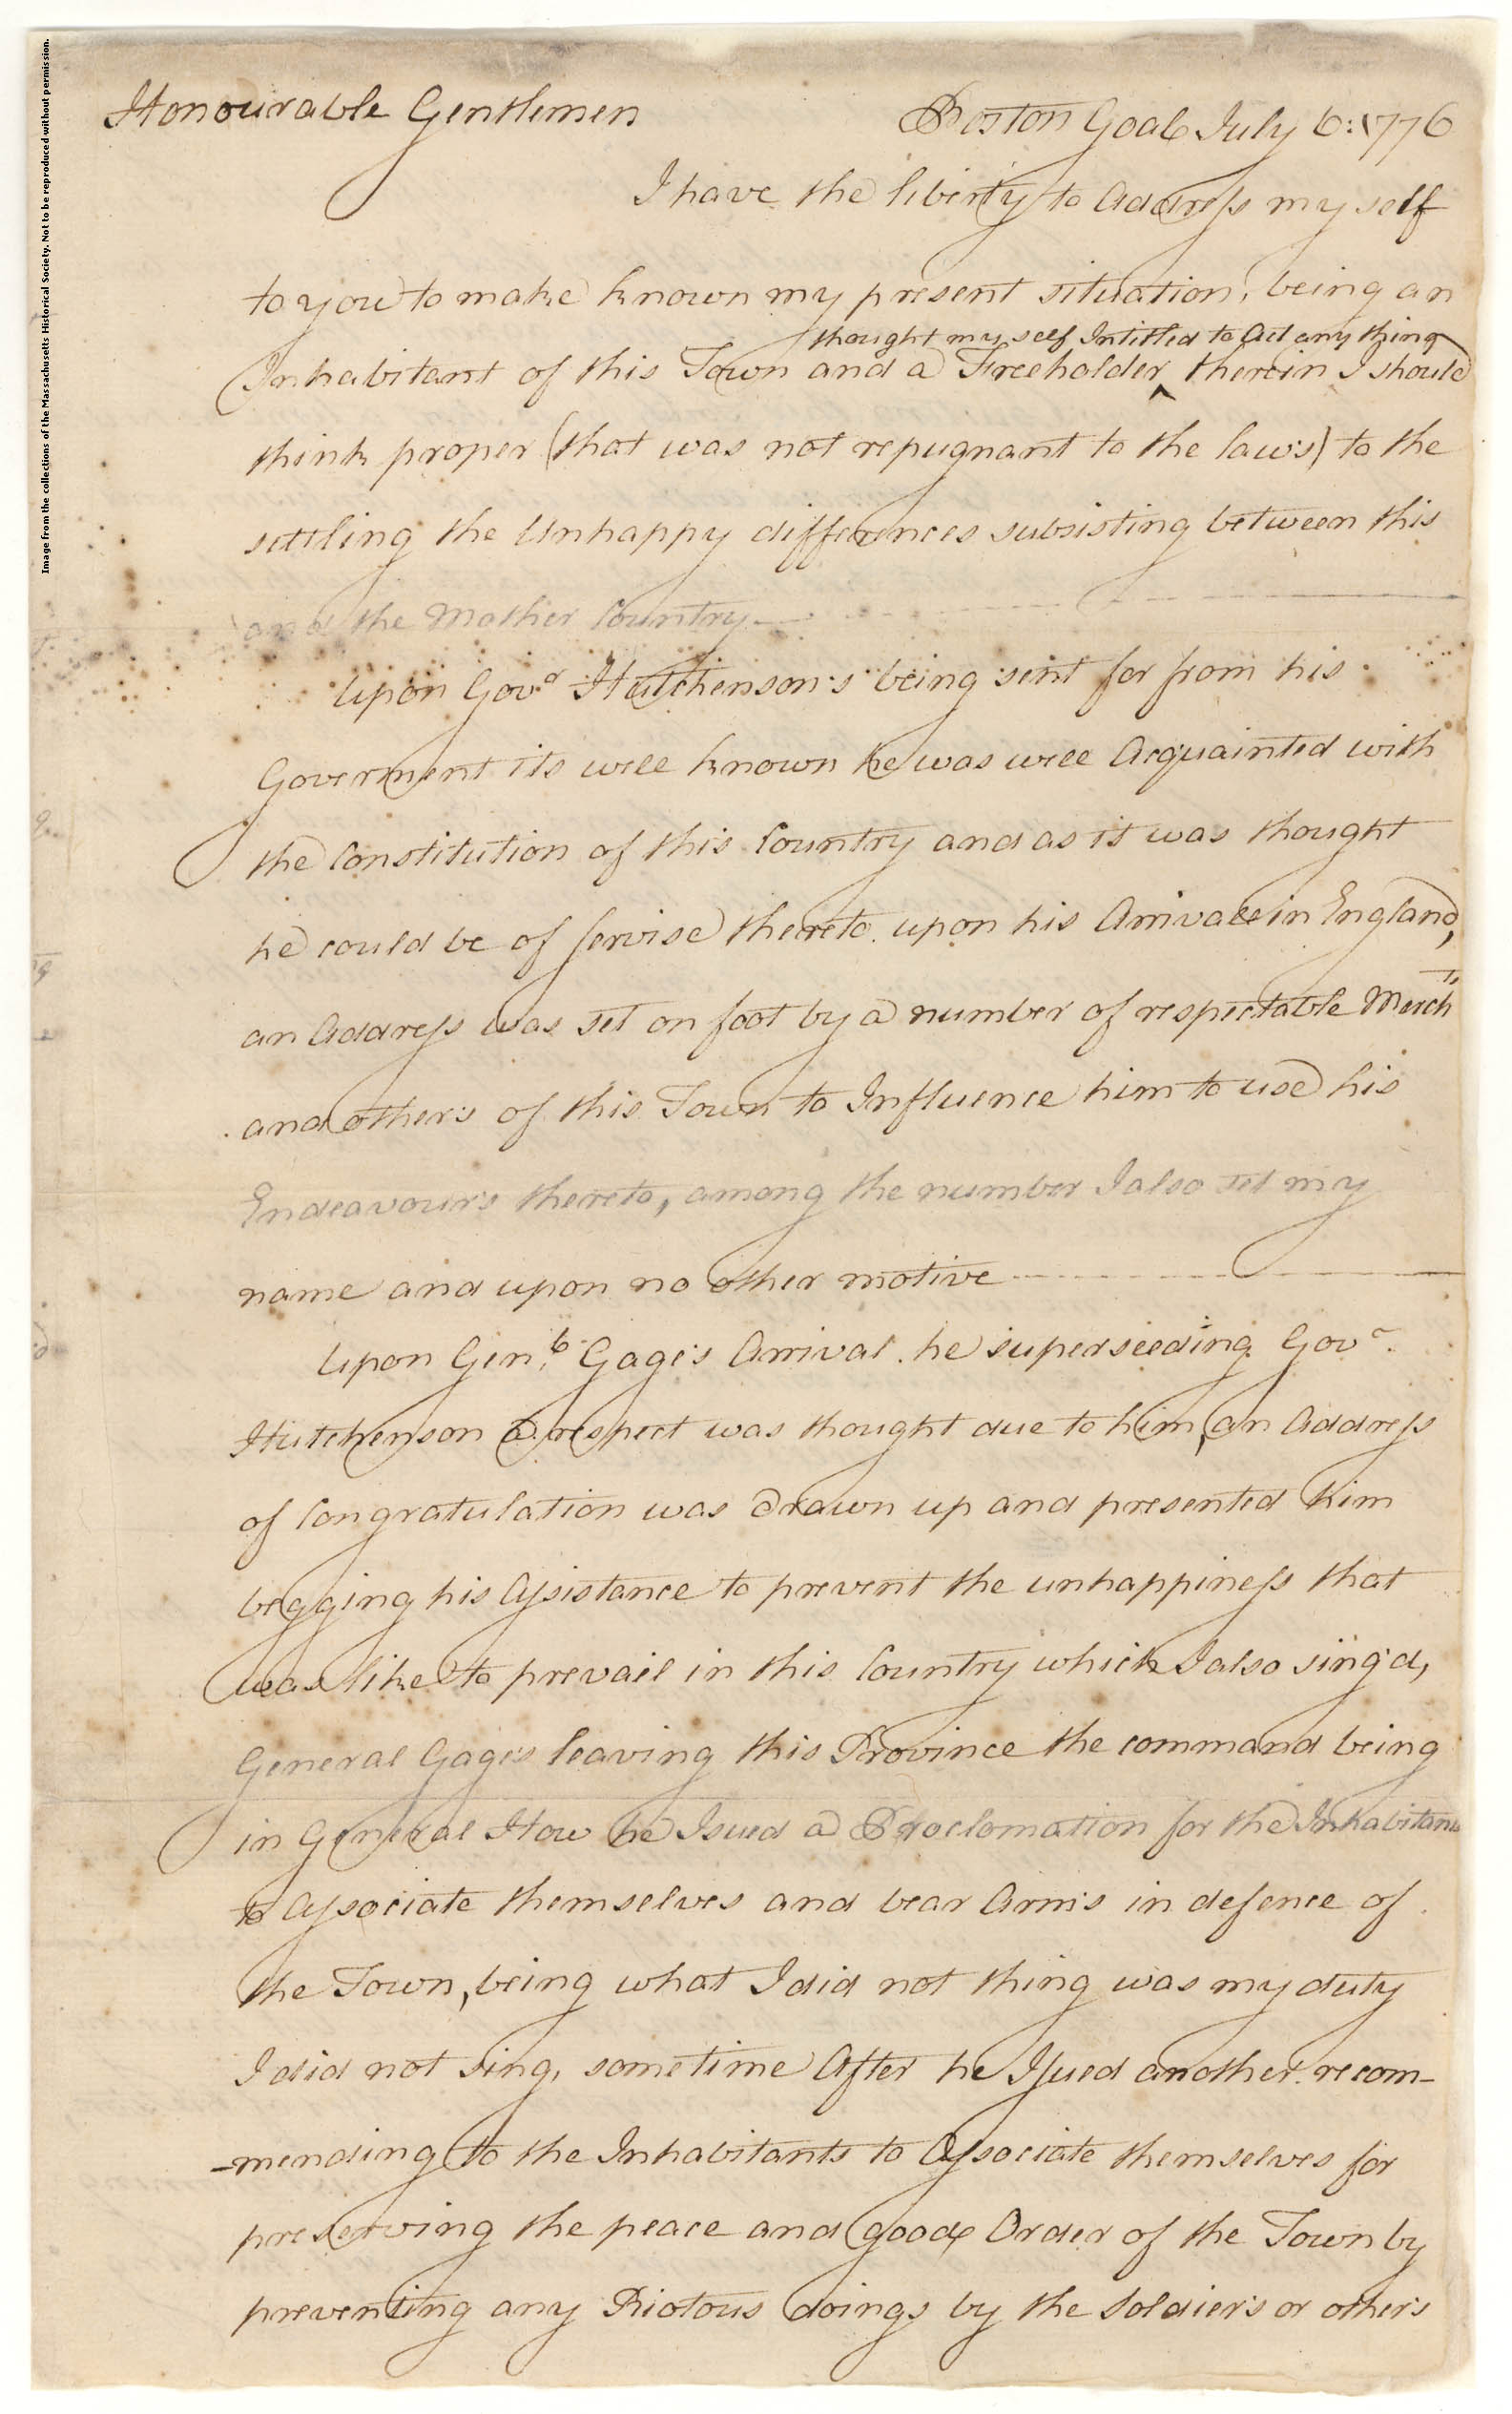 Image from the collections of the Massachusetts Historical Society. Not to be reproduced without permission.
Honourable Gentlemen
Boston Goal July 6: 1776
I have the liberty to Address my self
to you to make known my present situation, being an
thought my self Intitled to Act any thing
Inhabitant of this Town and a Freeholder ^ therein I should
think proper (that was not repugnant to the laws) to the
settling the Unhappy differences subsisting between this
and the Mother Country —
Upon Govr Hutchenson's being sent for from his
Goverment its well known he was well Acquainted with
the Constitution of this Country and as it was thought
he could be of servise thereto upon his Arrivall in England,
an Address was set on foot by a number of respectable Merchts
and others of this Town to Influence him to use his
Endeavours thereto, among the number I also set my
name and upon no other motive
Upon Genl Gage's Arrival he superseeding Govr
Hutchenson a respect was thought due to him, an Address
of Congratulation was drawn up and presented him
begging his Assistance to prevent the unhappiness that
was like to prevail in this Country which I also sing'd,
General Gages leaving this Province the command being
in General How he Isued a Proclomation for the Inhabitants
to Associate themselves and bear Arms in defence of
the Town, being what I did not thing was my duty
I did not sing, sometime After he Issued another recom-
-mending to the Inhabitants to Associate themselves for
preserving the peace and good Order of the Town by
preventing any Riotous doings by the Soldiers or others